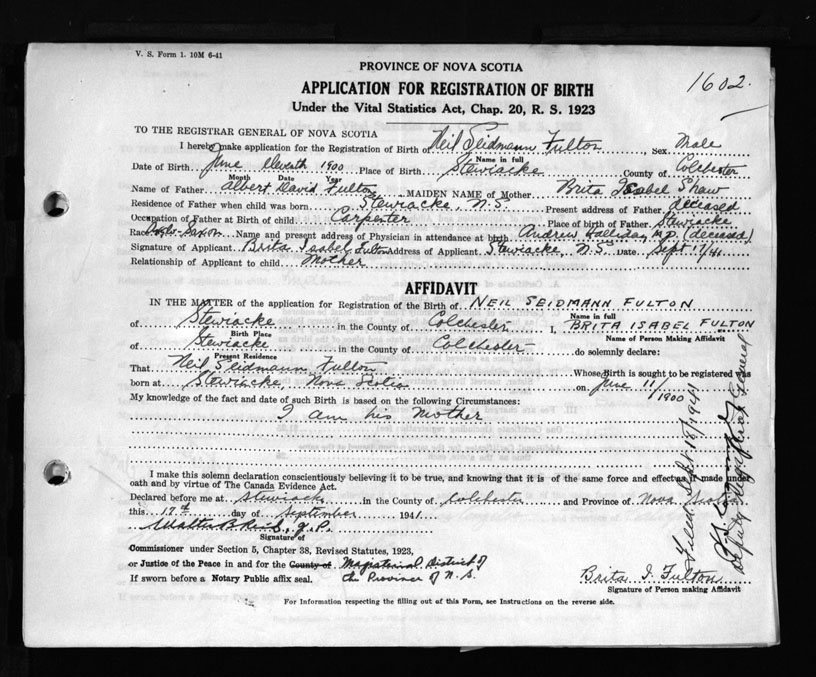 V. S. Form 1. 10M 6-41
PROVINCE OF NOVA SCOTIA
1602.
APPLICATION FOR REGISTRATION OF BIRTH
Under the Vital Statistics Act, Chap. 20, R. S. 1923
TO THE REGISTRAR GENERAL OF NOVA SCOTIA
I hereby make application for the Registration of Birth of Neil Seidmann Fulton Sex Male
Name in full
Date of Birth June eleventh 1900 Place of Birth Stewiacke County of Colchester
Month Date Year
Name of Father Albert David Fulton MAIDEN NAME of Mother Brita Isabel Shaw
Residence of Father when child was born Stewiacke, N.S. Present address of Father deceased
Occupation of Father at Birth of child Carpenter Place of birth of Father Stewiacke
Race Anglo-Saxon Name and present address of Physician in attendance at birth Andrew Halliday M.D. (deceased)
Signature of Applicant Brita Isabel Fulton Address of Applicant Stewiacke, N.S. Date Sept 17/41
Relationship of Applicant to child Mother
AFFIDAVIT
IN THE MATTER of the application for Registration of the Birth of NEIL SEIDMANN FULTON
Name in full
of Stewiacke in the County of Colchester I, BRITA ISABEL FULTON
Birth Place Name of Person Making Affidavit
of Stewiacke in the County of Colchester do solemnly declare:
Present Residence
That Neil Seidmann Fulton Whose Birth is sought to be registered was
born at Stewiacke, Nova Scotia on June 11/1900
My knowledge of the fact and date of such Birth is based on the following Circumstances:
I am his Mother
I make this solemn declaration conscientiously believing it to be true, and knowing that it is of the same force and effect as if made under
oath and by virtue of The Canada Evidence Act.
Declared before me at Stewiacke in the County of Colchester and Province of Nova Scotia
this 17th day of September 1941
J.P.
Signature of
Commissioner under Section 5, Chapter 38, Revised Statutes, 1923,
or Justice of the Peace in and for the County of Magisterial District of
If sworn before a Notary Public affix seal. the Province of N.S.
Brita I. Fulton
Signature of Person making Affidavit
For Information respecting the filling out of this Form, see Instructions on the reverse side.
Filed Sept 18/1941
Deputy Registrar General